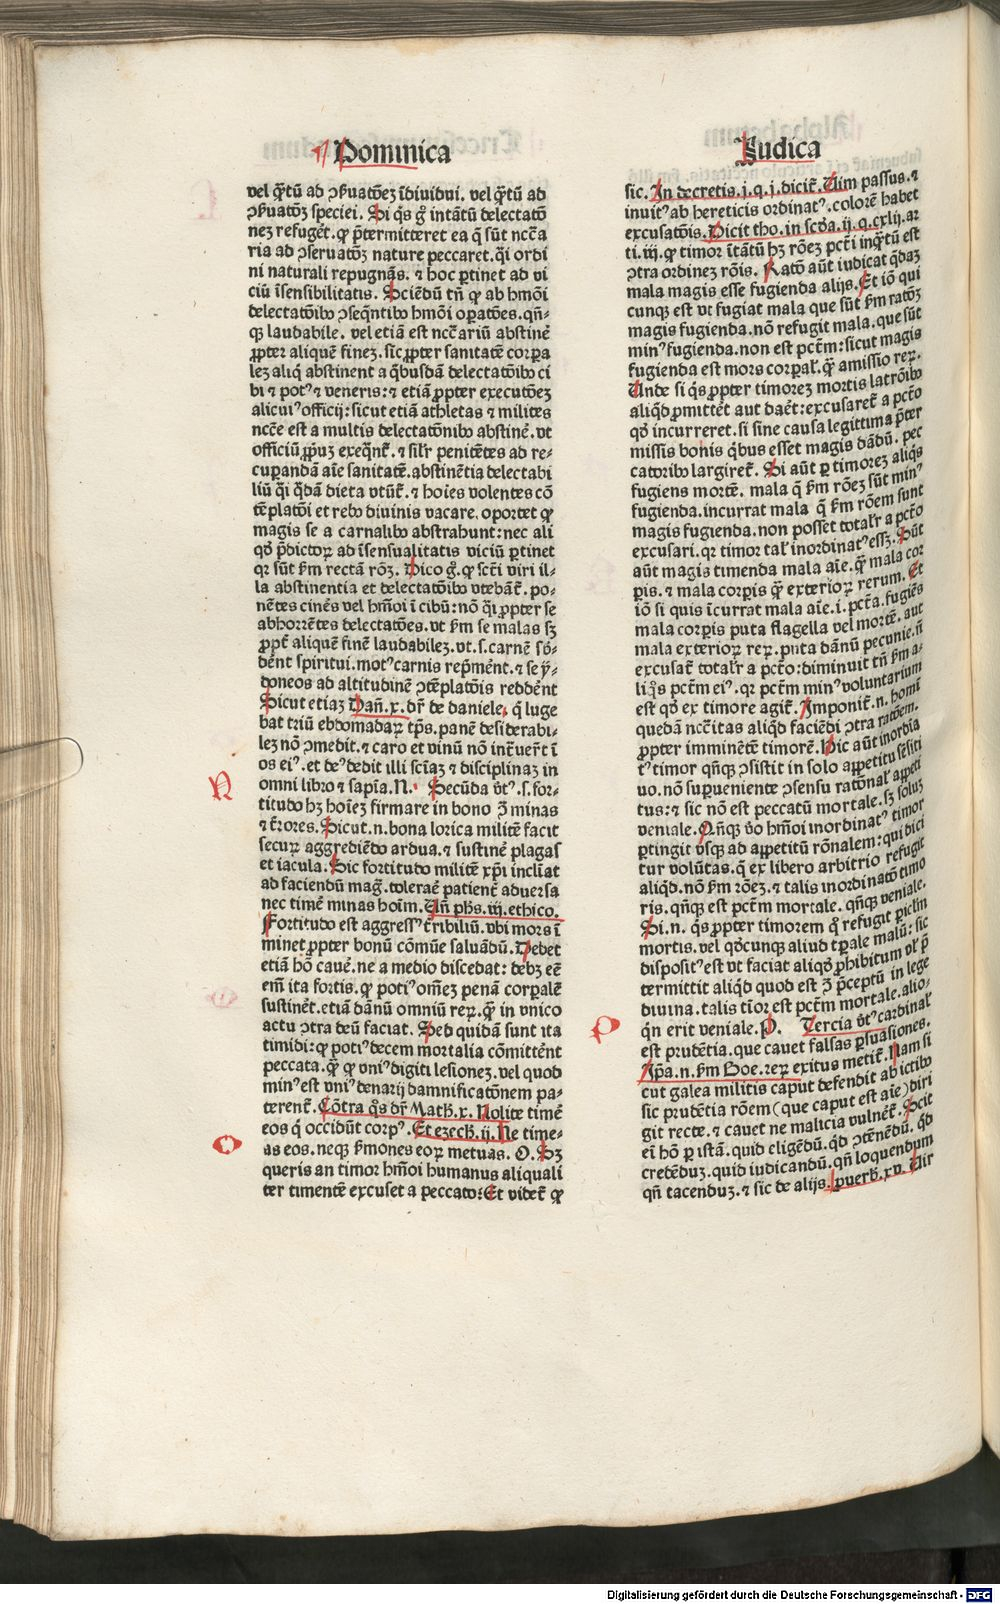 Dominica
Judica
vel q̄ꝫtū ad ꝯẜuatōeꝫ ĩdiuidui. vel q̄ꝫtū ad
ꝯẜuatōꝫ speciei. Si q̄s g̊ intātū delectatō
neꝫ refuget̄. ꝙ p̄termitteret ea q̄ sūt ncc̄a
ria ad ꝯseruatōꝫ nature peccaret. q̄i ordi
ni naturali repugnās. ⁊ hoc ꝑtinet ad vi
ciū ĩsensibilitatis. Sciēdū tn̄ ꝙ ab hmōi
delectatōibꝰ ꝯseq̄ntibꝰ hmōi oꝑatōes. qn̄-
qꝫ laudabile. vel etiā est ncc̄ariū abstinē
ꝓpter aliquē fineꝫ. sic ꝓpter sanitatē corꝑa
leꝫ aliq̄ abstinent a q̄busdā delectatōibꝰ ci
bi ⁊ potꝰ ⁊ veneris: ⁊ etiā ꝓpter executōeꝫ
alicuiꝰ officij: sicut etiā athletas ⁊ milites
ncc̄e est a multis delectatōnibꝰ abstinē. vt
officiū ꝓpuꝫ exeq̄nt̄. ⁊ sil̄r penitētes ad re-
cuꝑandā aīe sanitatē. abstinētia delectabi
liū q̄i q̄dā dieta vtūt̄. ⁊ hoīes volentes cō
tēplatōi et rebꝰ diuinis vacare. oportet ꝙ
magis se a carnalibꝰ abstrahunt: nec ali
qd̄ p̄dictoꝝ ad ĩsensualitatis viciū ꝑtinet
qꝛ sūt ẜm rectā rōꝫ. Dico g̊. ꝙ sct̄i viri il-
la abstinentia et delectatōibꝰ vtebāt̄. po-
nētes cinēs vel hmōi ĩ cibū: nō q̄i ꝓpter se
abhorrētes delectatōes. vt ẜm se malas sꝫ
ꝓpt̄ aliquē finē laudabileꝫ. vt. s. carnē sb̄-
dēnt spiritui. motꝰ carnis rep̄mēnt. ⁊ se y-
doneos ad altitudinē ꝯtēplatōis reddēnt
Sicut etiaꝫ Dan̄. x. dr̄ de daniele. q̄ luge
bat triū ebdomadaꝝ tp̄s. panē desiderabi-
leꝫ nō ꝯmedit. ⁊ caro et vinū nō int̄uert̄ ĩ
os eiꝰ. et deꝰ dedit illi sciāꝫ ⁊ disciplinaꝫ in
omni libro ⁊ sapīa. N. Secūda v̄tꝰ. s. for-
titudo hꝫ hoīeꝫ firmare in bono ꝯ̄ minas
⁊ t̄rores. Sicut. n. bona lorica militē facit
securꝫ aggrediēdo ardua. ⁊ sustinē plagas
et iacula. Sic fortitudo militē xp̄i incliāt
ad faciendū maḡ. toleraē patient̄ aduersa
nec timē minas hoīm. Un̄ ph̄s. iij. ethico.
Fortitudo est aggressꝰ t̄ribiliū. vbi mors ĩ
minet ꝓpter bonū cōmūe saluādū. Debet
etiā hō cauē. ne a medio discedat: debꝫ eē
em̄ ita fortis. ꝙ potiꝰ om̄eꝫ penā corꝑalē
sustinēt. etiā dānū omniū reꝝ. q̄ꝫ in vnico
actu ꝯtra deū faciat. Sed quidā sunt ita
timidi: ꝙ potiꝰ decem mortalia cōmittēnt
peccata. q̄ꝫ ꝙ vniꝰ digiti lesioneꝫ. vel quod
minꝰ est vniꝰ denarij damnificatōnem pa-
terent̄. Cōtra q̄s dr̄ Math. x. Nolite timē
eos q̄ occidūt corpꝰ. Et ezech. ij. Ne time-
as eos. neqꝫ ẜmones eoꝝ metuas. O. Sꝫ
queris an timor hmōi humanus aliquali
ter timentē excuset a peccato: Et videt̄ ꝙ
N
O
sic. In decretis. j. q. j. dicit̄. Uim passus. ⁊
inuitꝰ ab hereticis ordinatꝰ. colorē habet
excusatōis. Dicit tho. in scd̄a. ij. q. cxlij. ar
ti. iij. ꝙ timor ĩtātū hꝫ rōeꝫ pct̄i inq̄ꝫtū est
ꝯtra ordineꝫ rōis. Ratō aūt iudicat q̄daꝫ
mala magis esse fugienda alijs. Et iō qui
cunqꝫ est vt fugiat mala que sūt ẜm ratōꝫ
magis fugienda. nō refugit mala. que sūt
minꝰ fugienda. non est pct̄m: sicut magis
fugienda est mors corꝑal̄. q̄ꝫ amissio reꝝ.
Unde si q̄s ꝓpter timoreꝫ mortis latrōibꝰ
aliqd̄ ꝓmitteꝛ̄t aut daēt: excusaret̄ a pct̄o
qd̄ incurreret. si sine causa legittima p̄ter
missis bonis q̄bus esset magis dādū. pec
catoribꝰ largiret̄. Si aūt ꝑ timoreꝫ aliq̄s
fugiens mortē. mala q̄ ẜm rōeꝫ sūt minꝰ
fugienda. incurrat mala q̄ ẜm rōem sunt
magis fugienda. non posset total̄r a pct̄o
excusari. qꝛ timor tal̄ inordinatꝰ essꝫ. Sūt
aūt magis timenda mala aīe. q̄ꝫ mala cor
ꝑis. ⁊ mala corꝑis q̄ꝫ exterioꝝ rerum. Et
iō si quis ĩcurrat mala aīe. i. pct̄a. fugiēs
mala corꝑis puta flagella vel mortē. aut
mala exterioꝝ reꝝ. puta dānū pecunie. n̄
excusat̄ total̄r a pct̄o: diminuit tn̄ ẜm a-
liq̄s pct̄m eiꝰ. qꝛ pct̄m minꝰ voluntarium
est qd̄ ex timore agit̄. Imponit̄. n. homi
quedā ncc̄itas aliqd̄ faciēdi ꝯtra ratōem.
ꝓpter imminētē timorē. Hic aūt inordia
tꝰ timor qn̄qꝫ ꝯsistit in solo appetitu sēsiti
uo. nō suꝑueniente ꝯsensu ratōnal̄ appeti
tus: ⁊ sic nō est peccatū mortale. sꝫ soluꝫ
veniale. Qn̄qꝫ v̄o hmōi inordinatꝰ timor
ꝑtingit vsqꝫ ad appetitū rōnalem: qui dici
tur volūtas. q̄ ex libero arbitrio refugit
aliqd̄. nō ẜm rōeꝫ. ⁊ talis inordinatō timo
ris. qn̄qꝫ est pct̄m mortale. qn̄qꝫ veniale.
Si. n. q̄s ꝓpter timorem q̊ refugit ꝑiclm̄
mortis. vel qd̄cunqꝫ aliud tꝑale malū: sic
dispositꝰ est vt faciat aliqd̄ ꝓhibitum vl̄ p̄
termittit aliqd̄ quod est ꝯ̄ p̄ceptū in lege
diuina. talis tĩor est pct̄m mortale. alio-
q̄n erit veniale. P. Tercia v̄tꝰ cardinal̄
est prudētia. que cauet falsas ꝑsuasiones.
Ip̄a. n. ẜm Boe. reꝝ exitus metit̄. Nam si
cut galea militis caput defendit ab ictibꝰ
sic prudētia rōem (que caput est aīe) diri
git recte. ⁊ cauet ne malicia vulnēt̄. Scit
ei hō ꝑ istā. quid eligēdū. qd̄ ꝯtēnēdū. qd̄
credēduꝫ. quid iudicandū. qn̄ loquendum
qn̄ tacenduꝫ. ⁊ sic de alijs. ꝓuerb. xv. Uir
P
Digitalisierung gefördert durch die Deutsche Forschungsgemeinschaft - DFG